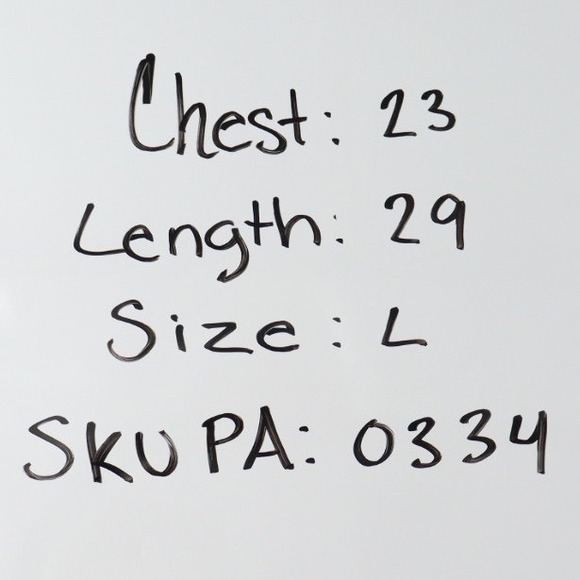 Chest: 23
Length: 29
Size: L
SKU PA: 0334